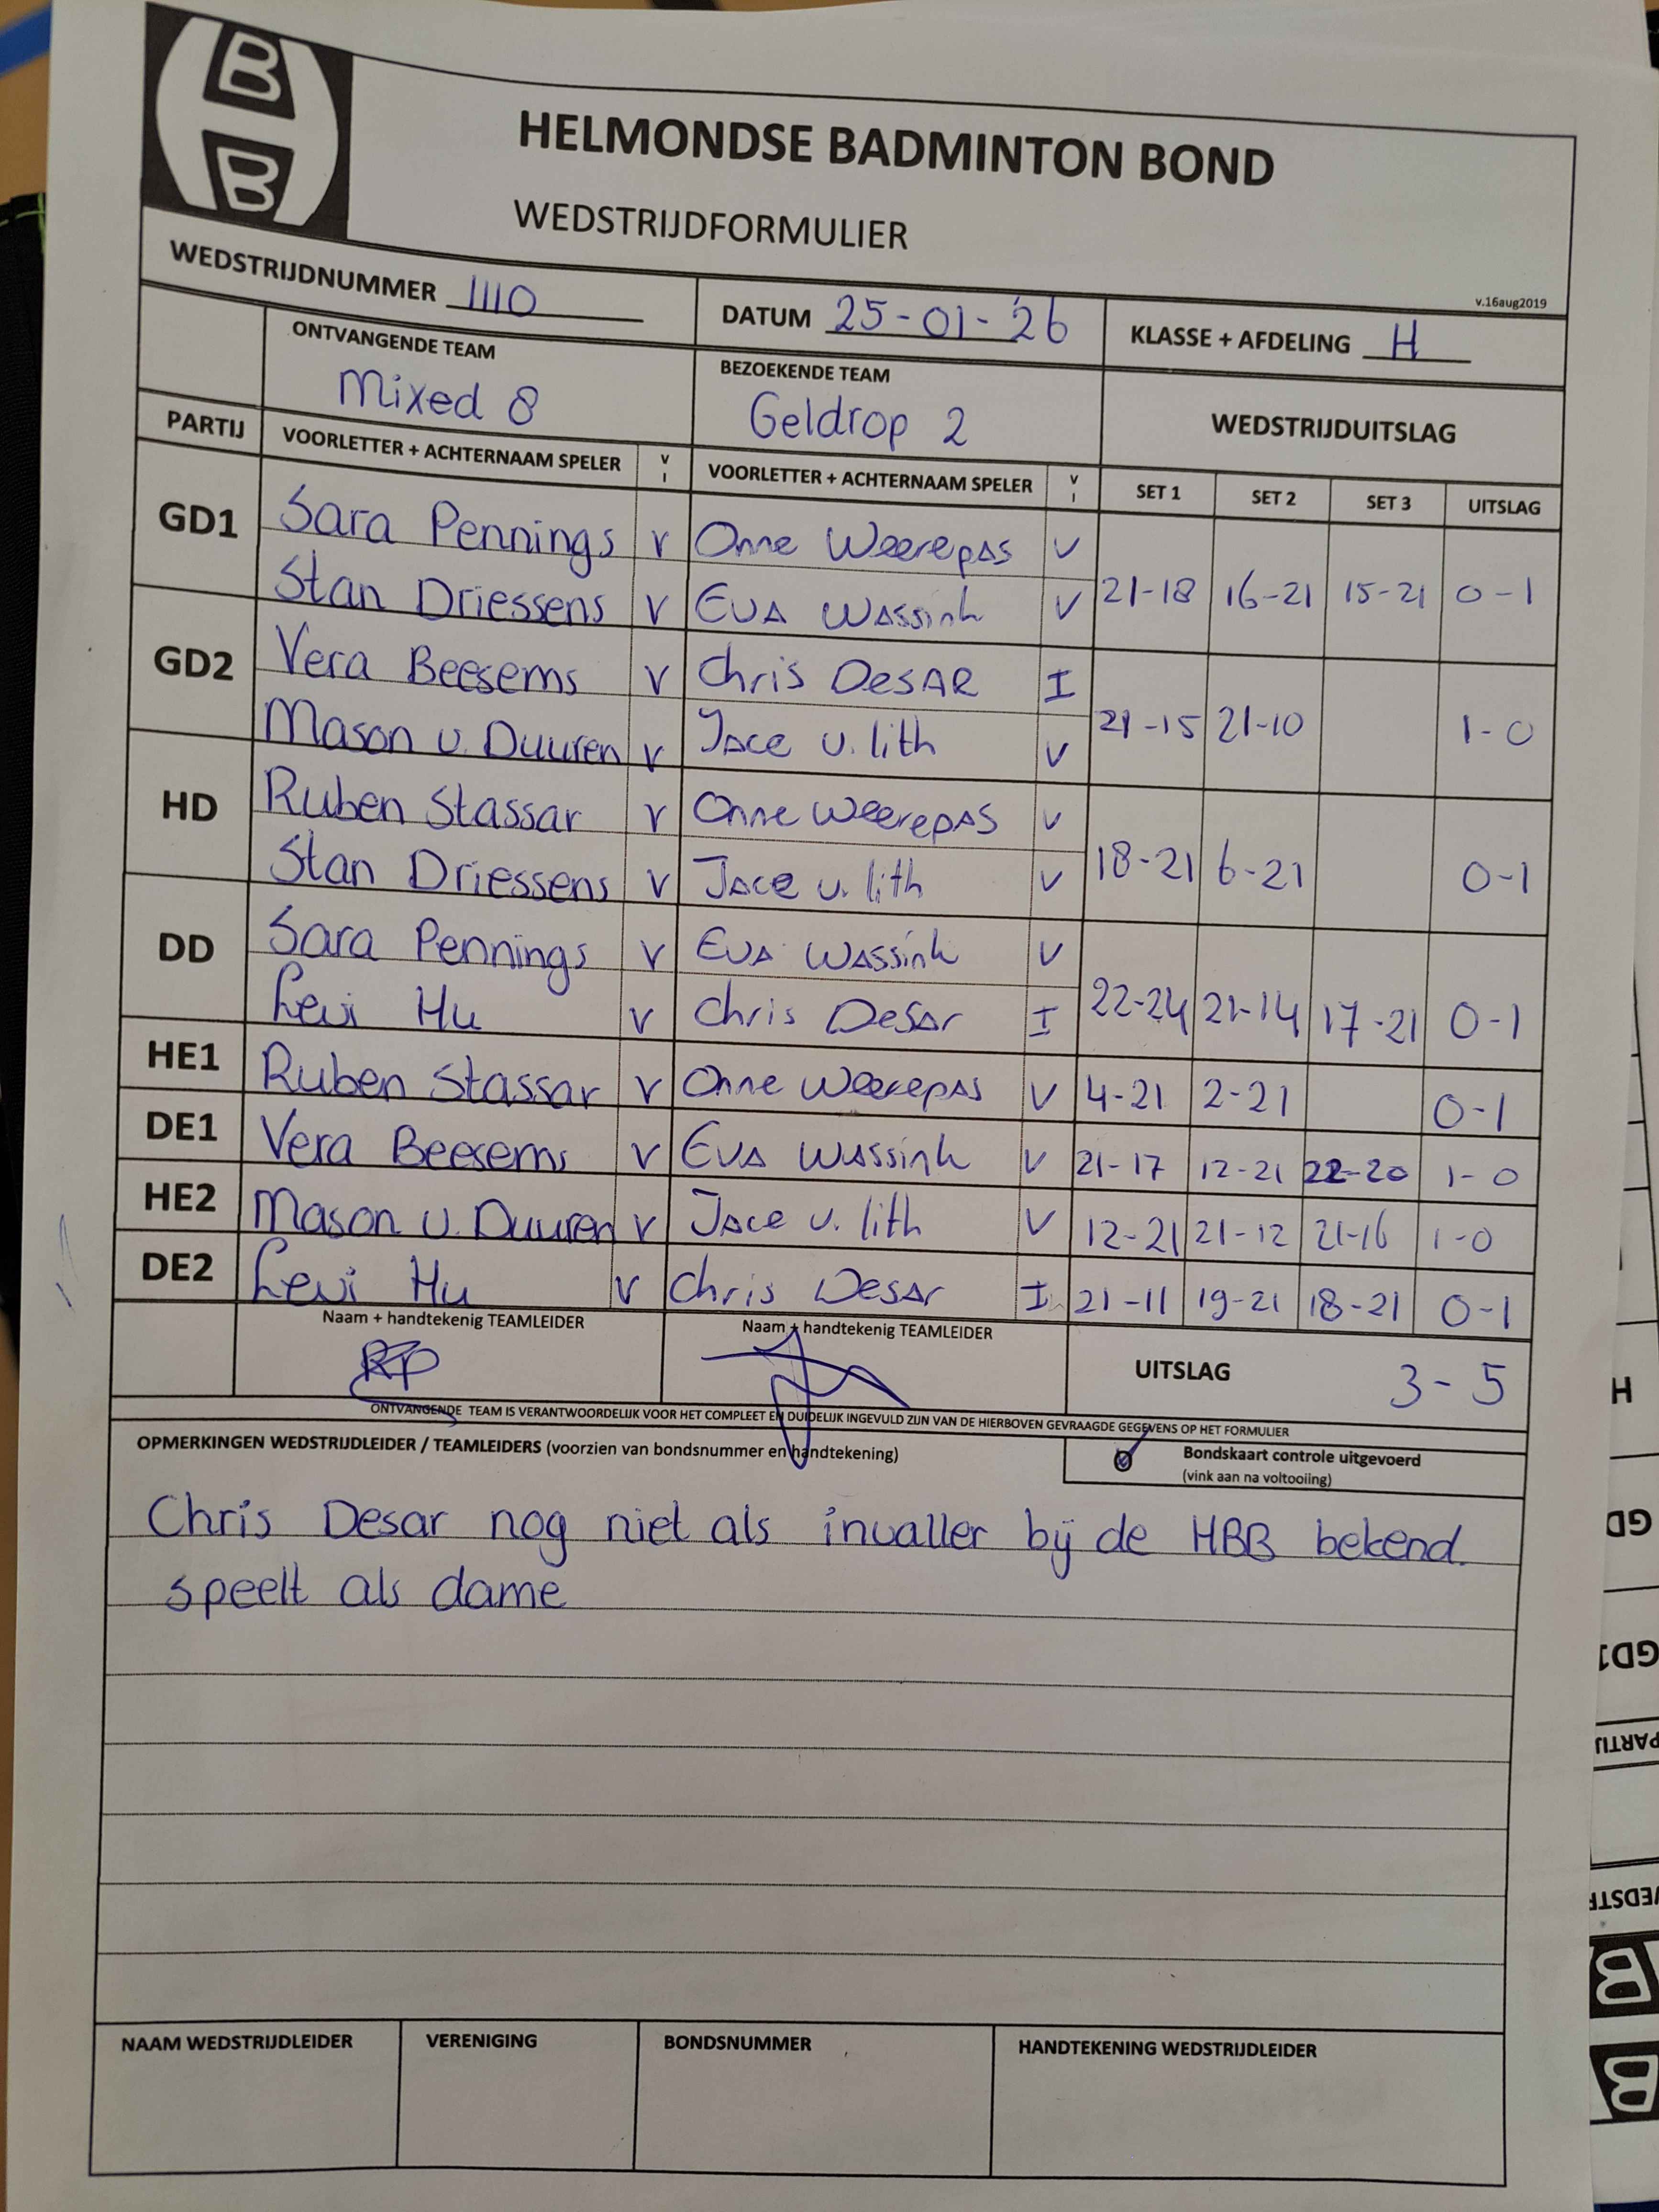 HELMONDSE BADMINTON BOND
WEDSTRIJDFORMULIER
v.16aug2019
WEDSTRIJDNUMMER 1110 DATUM 25-01-26 KLASSE + AFDELING H
ONTVANGENDE TEAM BEZOEKENDE TEAM
Mixed 8 Geldrop 2 WEDSTRIJDUITSLAG
PARTIJ VOORLETTER + ACHTERNAAM SPELER V I VOORLETTER + ACHTERNAAM SPELER V I SET 1 SET 2 SET 3 UITSLAG
GD1 Sara Pennings V Onne Weerepas V
Stan Driessens V Eva Wassink V 21-18 16-21 15-21 0-1
GD2 Vera Beesems V Chris Desar I
Mason v. Duuren V Jace v. lith V 21-15 21-10 1-0
HD Ruben Stassar V Onne Weerepas V
Stan Driessens V Jace v. lith V 18-21 6-21 0-1
DD Sara Pennings V Eva Wassink V
Levi Hu V Chris Desar I 22-24 21-14 17-21 0-1
HE1 Ruben Stassar V Onne Weerepas V 4-21 2-21 0-1
DE1 Vera Beesems V Eva Wassink V 21-17 12-21 22-20 1-0
HE2 Mason v. Duuren V Jace v. lith V 12-21 21-12 21-16 1-0
DE2 Levi Hu V Chris Desar I 21-11 19-21 18-21 0-1
Naam + handtekenig TEAMLEIDER Naam + handtekenig TEAMLEIDER
UITSLAG 3-5
ONTVANGENDE TEAM IS VERANTWOORDELIJK VOOR HET COMPLEET EN DUIDELIJK INGEVULD ZIJN VAN DE HIERBOVEN GEVRAAGDE GEGEVENS OP HET FORMULIER
OPMERKINGEN WEDSTRIJDLEIDER / TEAMLEIDERS (voorzien van bondsnummer en handtekening)
Bondskaart controle uitgevoerd
(vink aan na voltooiing)
Chris Desar nog niet als invaller bij de HBB bekend.
speelt als dame
NAAM WEDSTRIJDLEIDER VERENIGING BONDSNUMMER HANDTEKENING WEDSTRIJDLEIDER